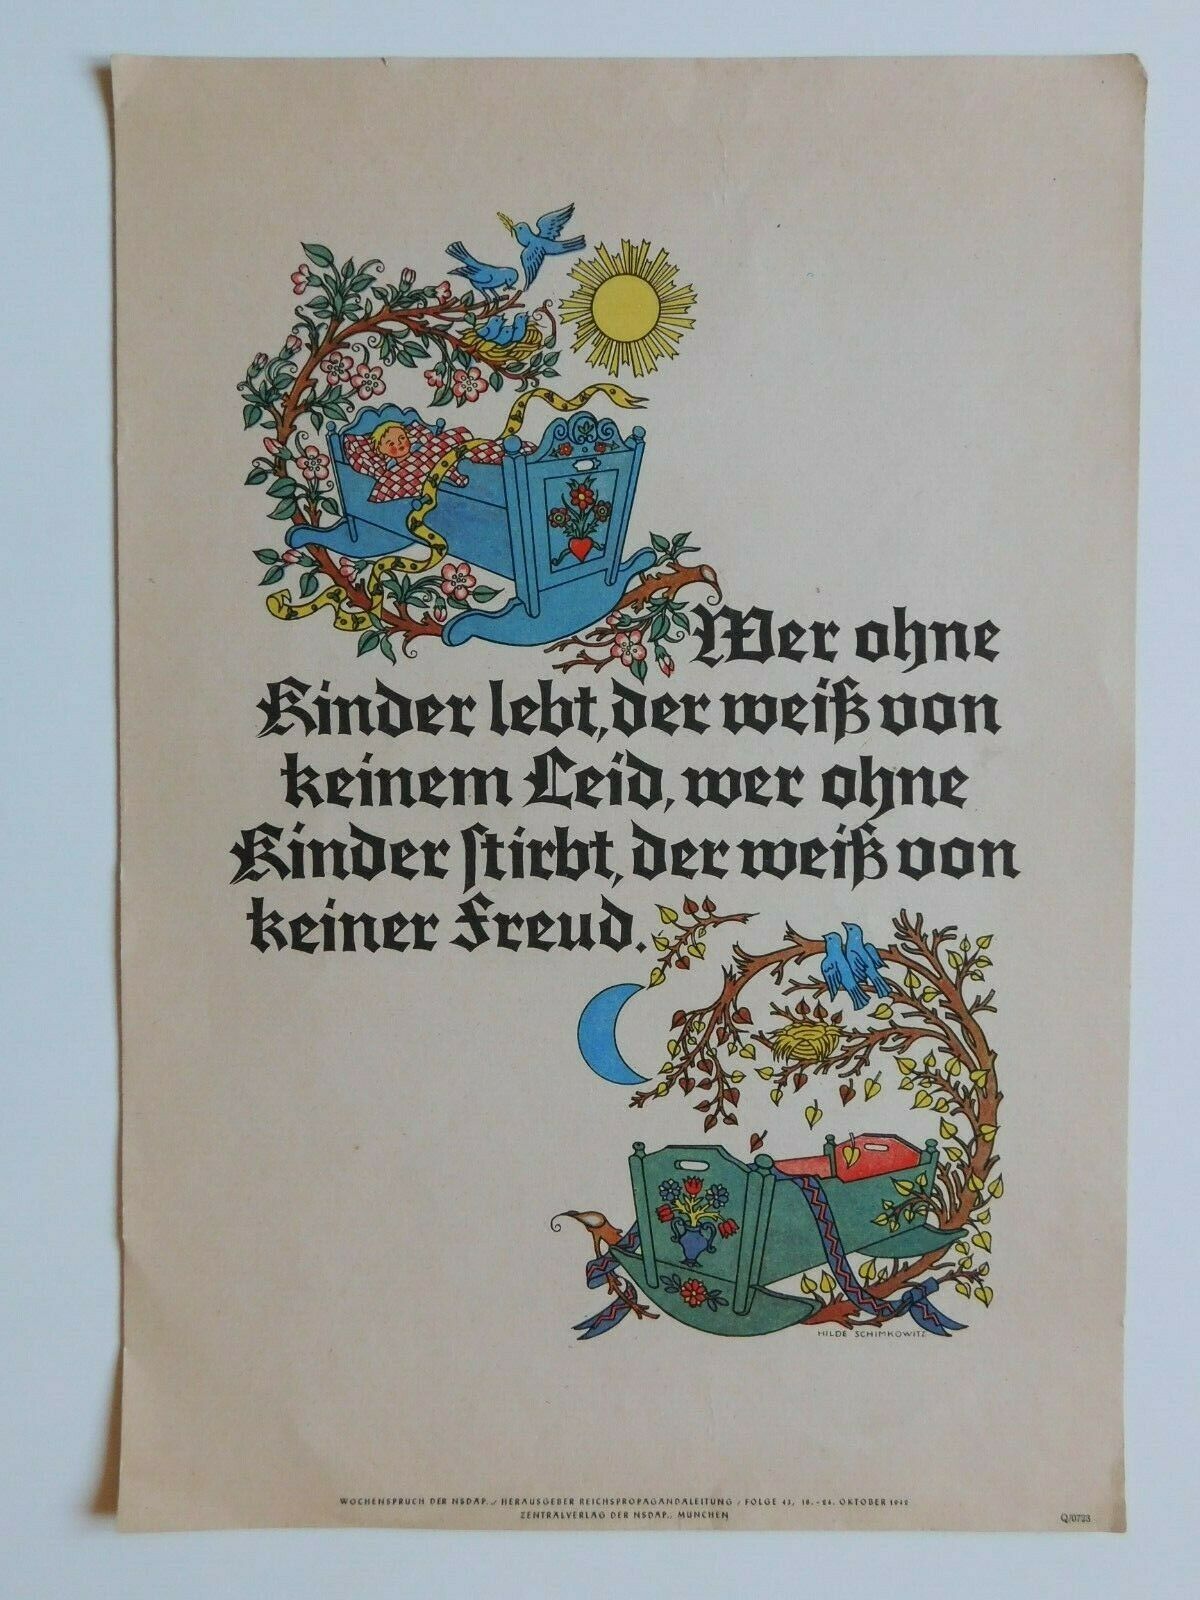 Wer ohne
Kinder lebt, der weiß von
keinem Leid, wer ohne
Kinder stirbt, der weiß von
keiner Freud.
HILDE SCHIMKOWITZ
WOCHENSPRUCH DER NSDAP. / HERAUSGEBER REICHSPROPAGANDALEITUNG / FOLGE 43, 18.-24. OKTOBER 1942
ZENTRALVERLAG DER NSDAP., MÜNCHEN
Q/0723